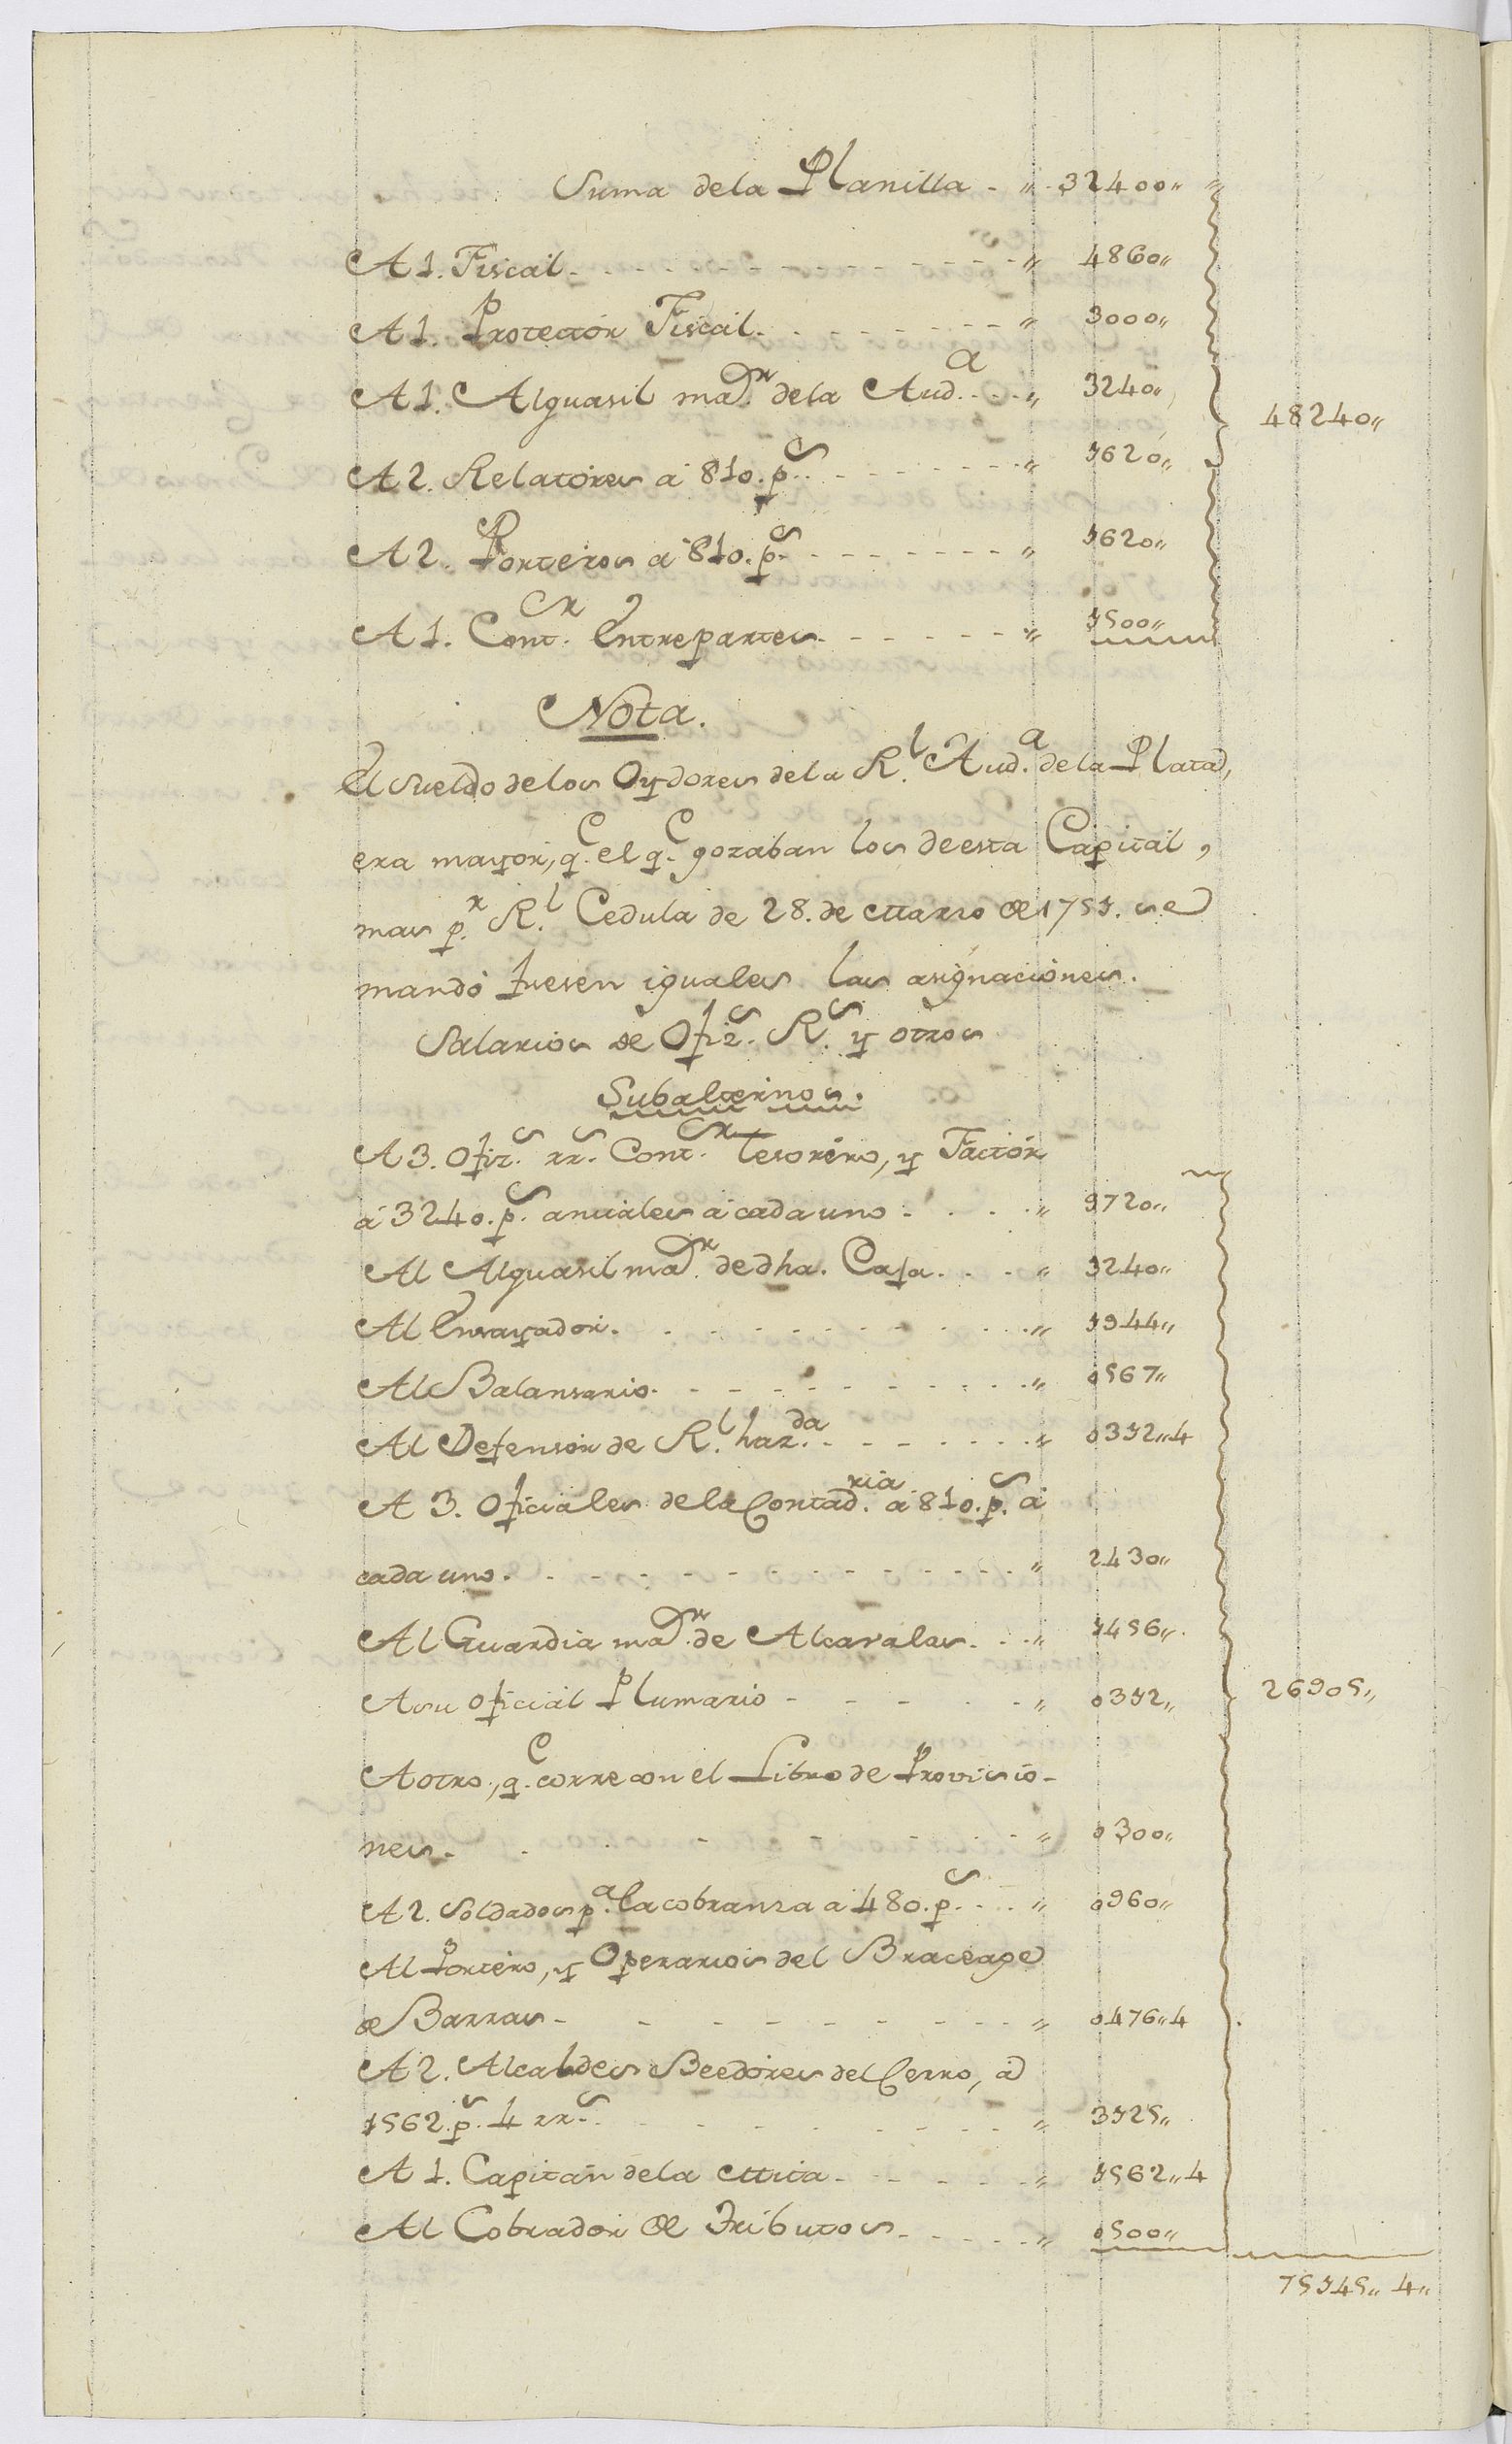 Suma dela Planilla - " 32400" "
A 1. Fiscal - " 4860"
A 1. Protector Fiscal - " 3000"
A 1. Alguasil maor. dela Auda. - " 3240"
48240"
A 2. Relatores a 810. ps. - " 1620"
A 2. Porteros a 810. ps. - " 1620"
A 1. Contor. Entrepartes - " 1500"
Nota.
El sueldo delos Oydores dela Rl. Auda. dela Plata,
era mayor, qe. el qe. gozaban los deesta Capital,
mas pr. Rl. Cedula de 28. de Marzo de 1751. se
mandó fuesen iguales las asignaciones.
Salarios de Ofizs. Rs. y otros
Subalternos.
A 3. Ofizs. rrs. Contor. Tesorero, y Factor
á 3240. ps. anuales a cada uno - " 9720"
Al Alguasil maor. dedha. Caja - " 3240"
Al Ensayador - " 1944"
Al Balansario - " 0567"
Al Defensor de Rl. hazda. - " 0312"4
A 3. Oficiales dela Contadria. a 810. ps. a
cada uno - " 2430"
Al Guardia maor. de Alcavalas - " 1456"
Asu oficial Plumario - " 0312"
26905"
A otro, qe. corre con el Libro de Provisio-
nes - " 0300"
A 2. Soldados pa. la cobransa a 480. ps. - " 0960"
Al Portero, y Operarios del Braceage
de Barras - " 0476"4
A 2. Alcaldes Beedores del Cerro, a
1562. ps. 4 rrs. - " 3125"
A 1. Capitan dela Mita - " 1562"4
Al Cobrador de Tributos - " 0500"
75145" 4"